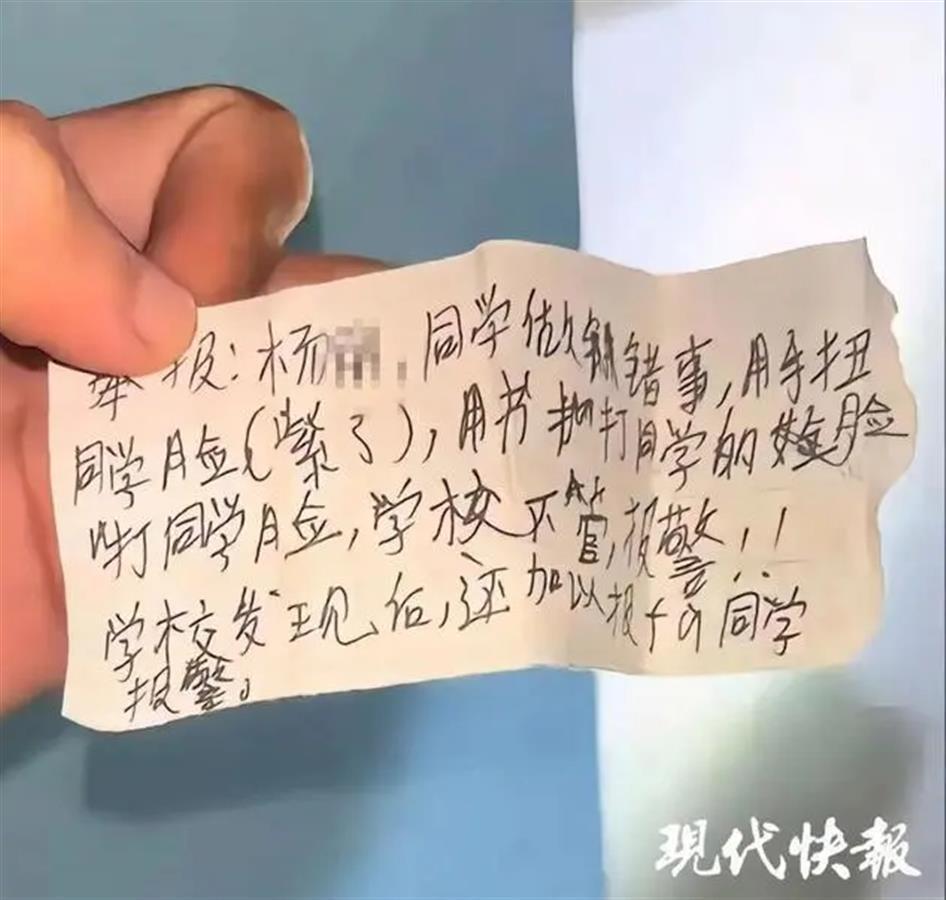 举报：杨 同学做错事，用手扭
同学脸（紫了），用书打同学的脸
打同学脸，学校不管，报警！！
学校发现后，还加以报 同学
报警。
现代快報